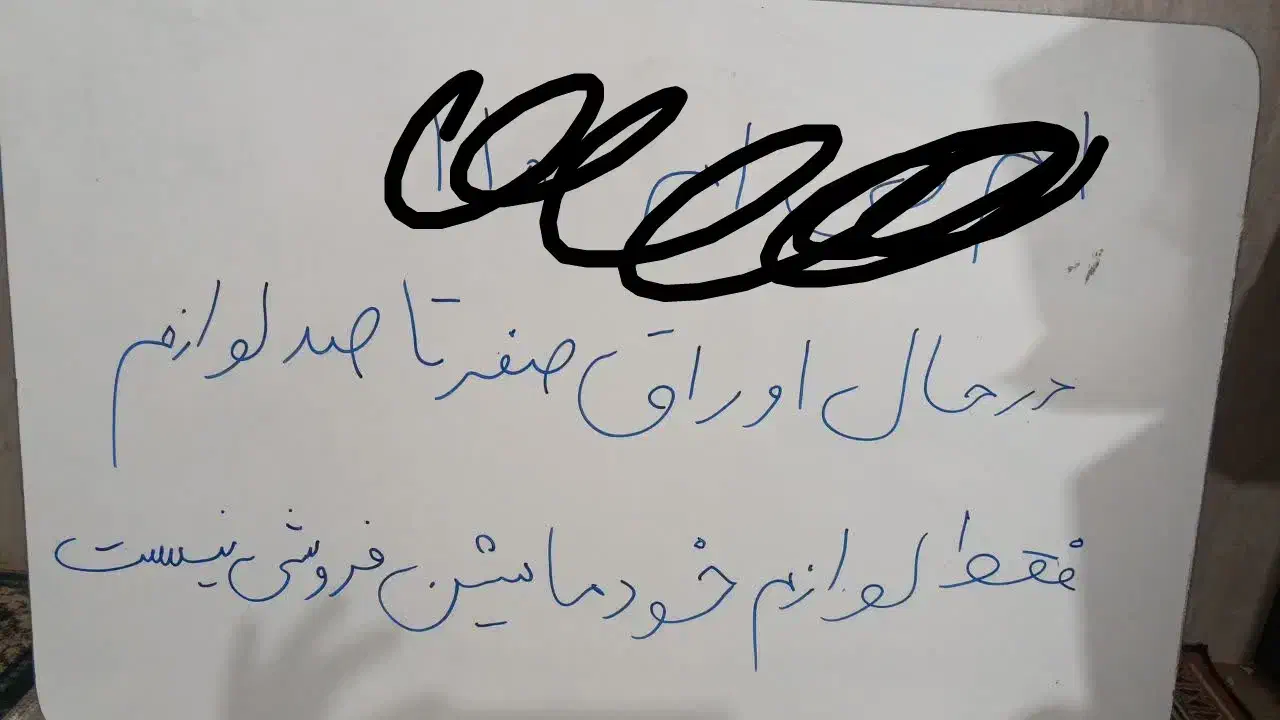 در حال اوراق صفر تا صد لوازم
فقط لوازم خود ماشین فروشی نیست